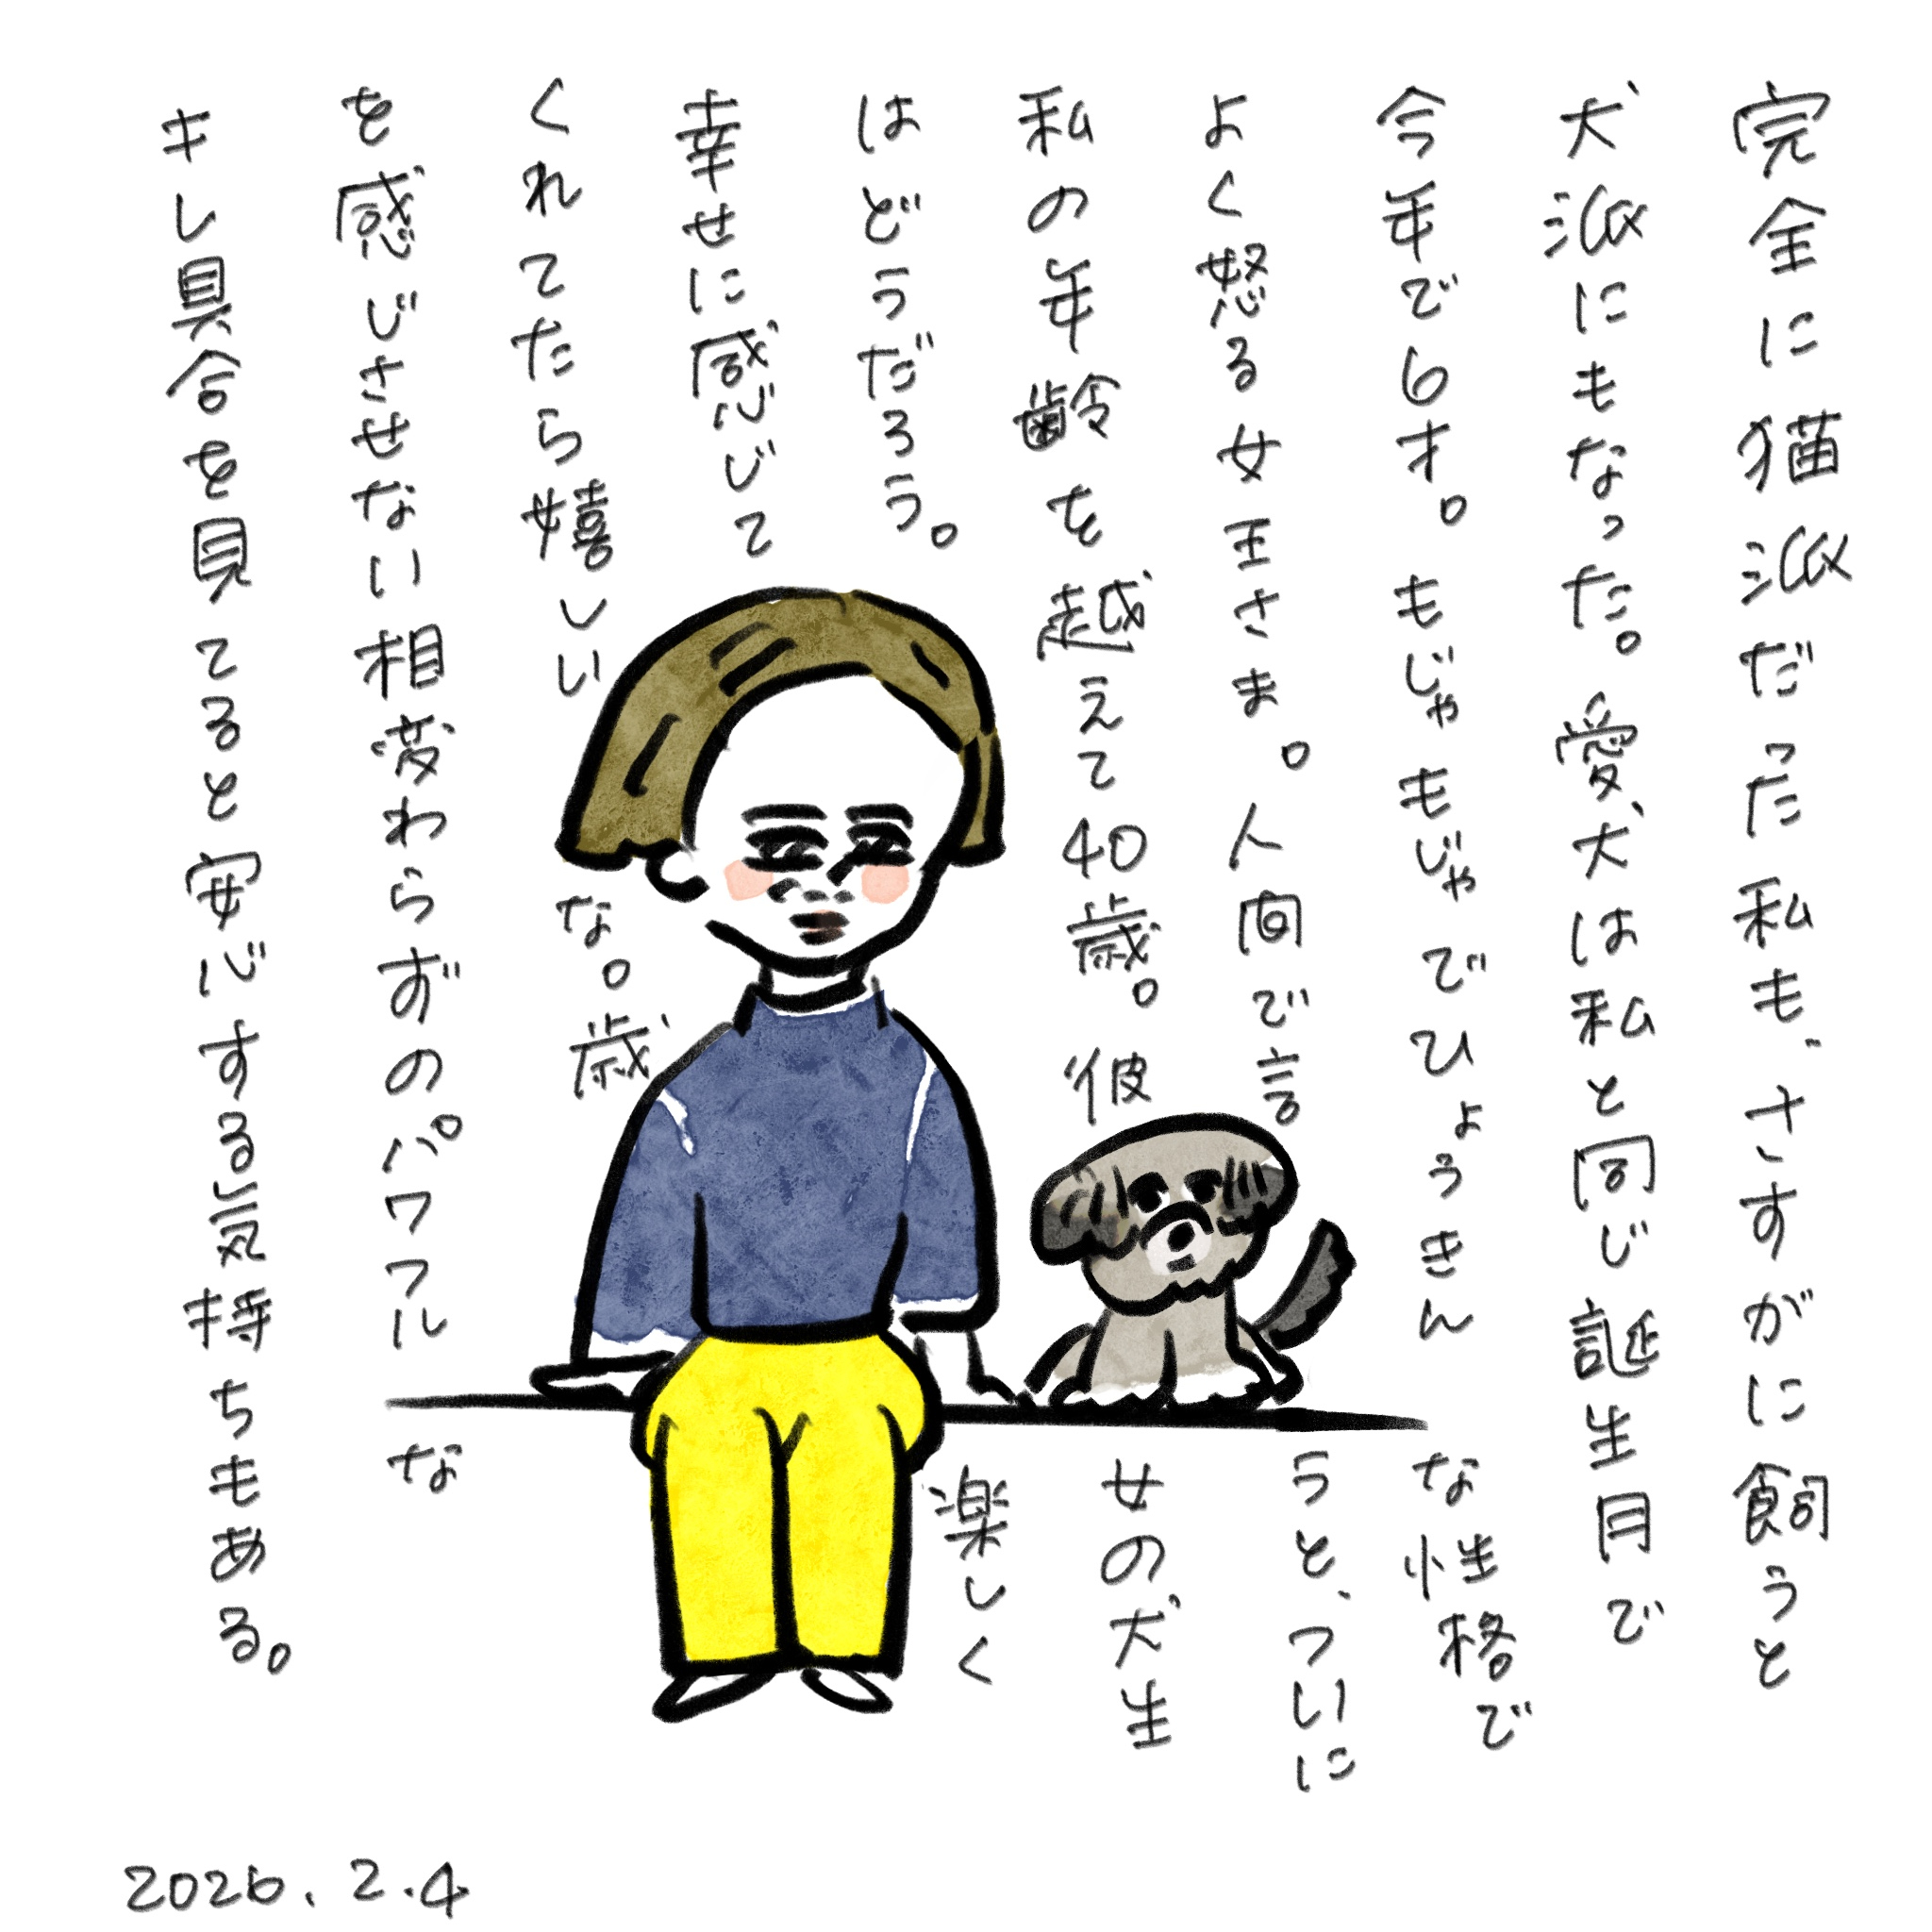 完全に猫派だった私も、さすがに飼うと
犬派にもなった。愛犬は私と同じ誕生月で
今年で6才。もじゃもじゃでひょうきんな性格で
よく怒る女王さま。人間で言うと、ついに
私の年齢を越えて40歳。彼女の犬生
はどうだろう。楽しく
幸せに感じて
くれてたら嬉しいな。歳
を感じさせない相変わらずのパワフルな
キレ具合を見てると安心する気持ちもある。
2026.2.4